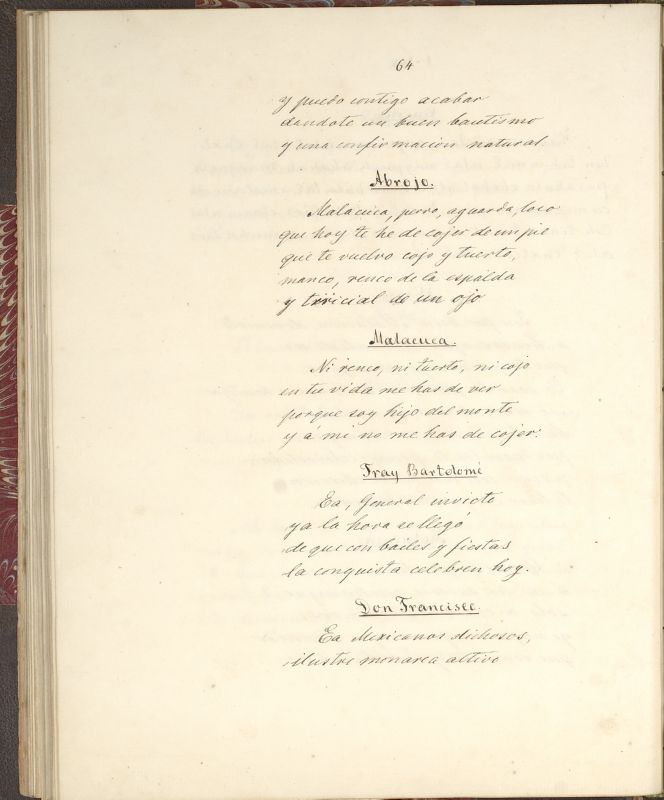 64
y puedo contigo acabar
dandote un buen bautismo
y una confirmacion natural.
Abrojo.
Malacuca, perro, aguarda, loco
que hoy te he de cojer de un pie
que te vuelvo cojo y tuerto,
manco, renco de la espalda
y tiricial de un ojo
Malacuca.
Ni renco, ni tuerto, ni cojo
en tu vida me has de ver
porque soy hijo del monte
y á mi no me has de cojer.
Fray Bartolomé
Ea, General invicto
ya la hora se llegó
de que con bailes y fiestas
la conquista celebren hoy.
Don Francisco.
Ea Mexicanos dichosos,
ilustre monarca altivo